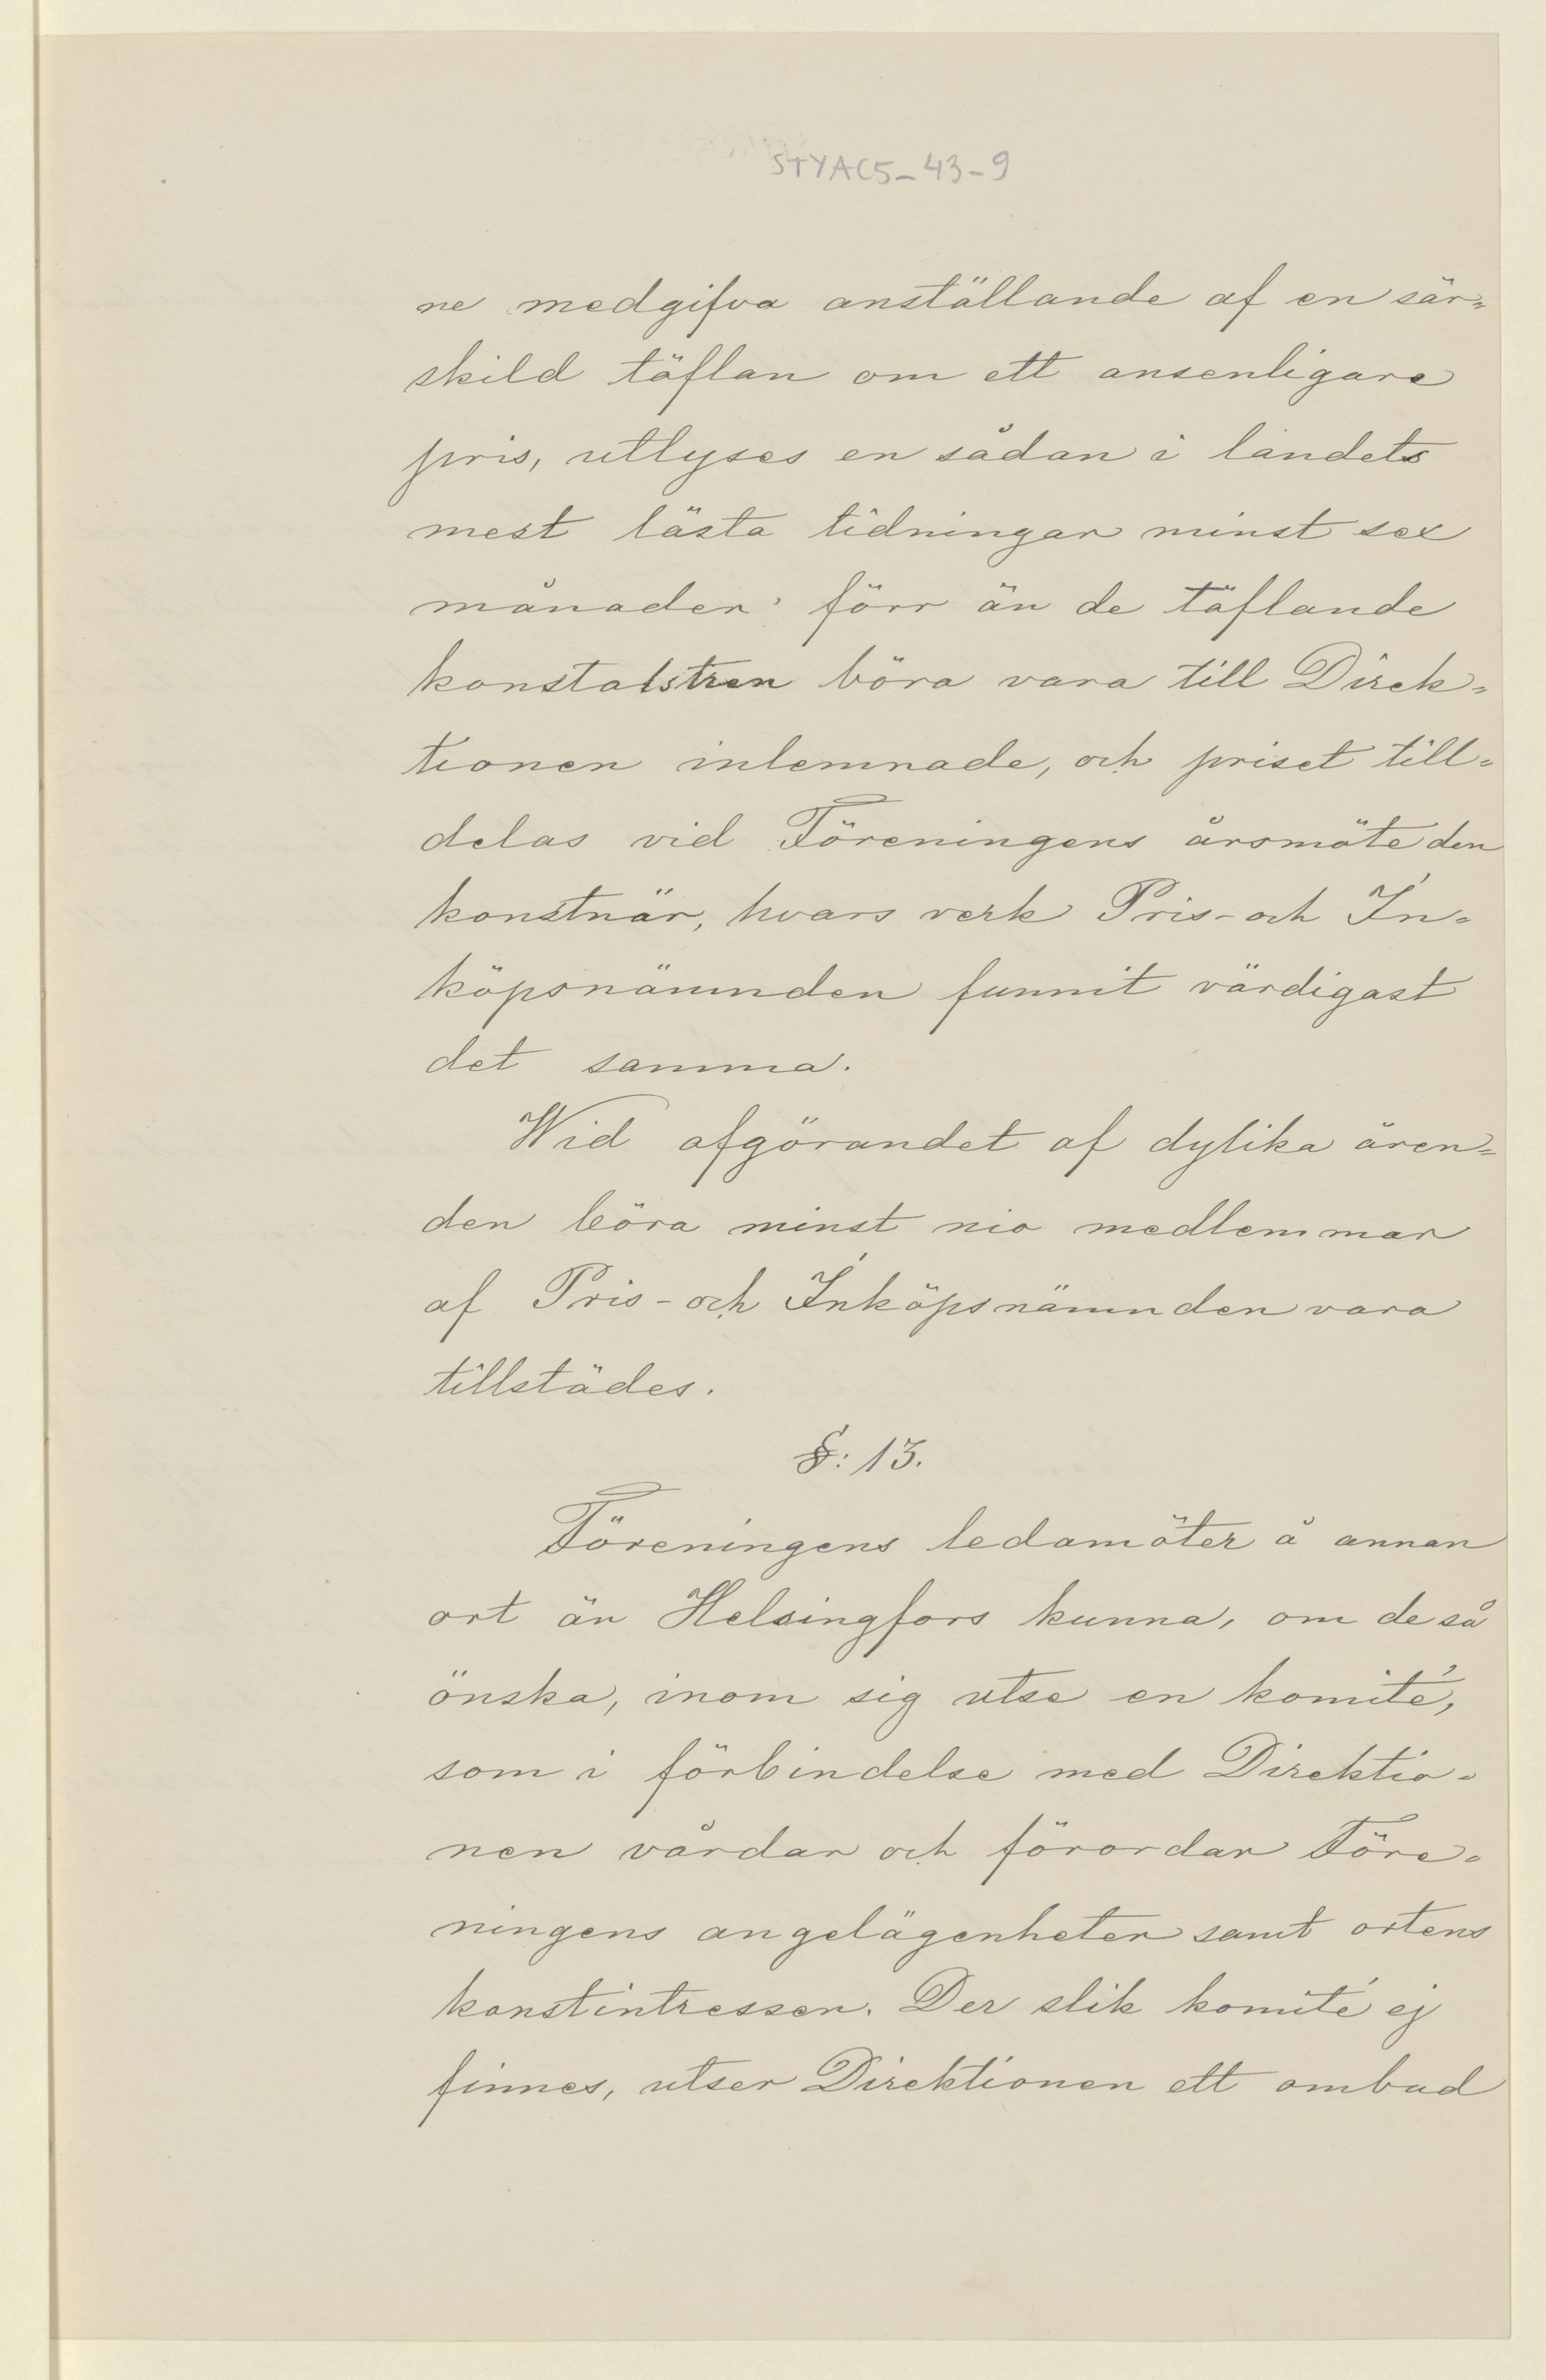 STYAC5-43-9
ne medgifva anställande af en sär=
skild täflan om ett ansenligare
pris, utlyses en sådan i landets
mest lästa tidningar minst sex
månader förr än de täflande
konstalstren böra vara till Direk=
tionen inlemnade, och priset till=
delas vid Föreningens årsmöte den
konstnär, hvars verk Pris- och In=
köpsnämnden funnit värdigast
det samma.
Wid afgörandet af dylika ären=
den böra minst nio medlemmar
af Pris- och Inköpsnämnden vara
tillstädes.
§: 13.
Föreningens ledamöter å annan
ort än Helsingfors kunna, om de så
önska, inom sig utse en komité,
som i förbindelse med Direktio=
nen vårdar och förordar Före=
ningens angelägenheter samt ortens
konstintressen. Der slik komité ej
finnes, utser Direktionen ett ombud